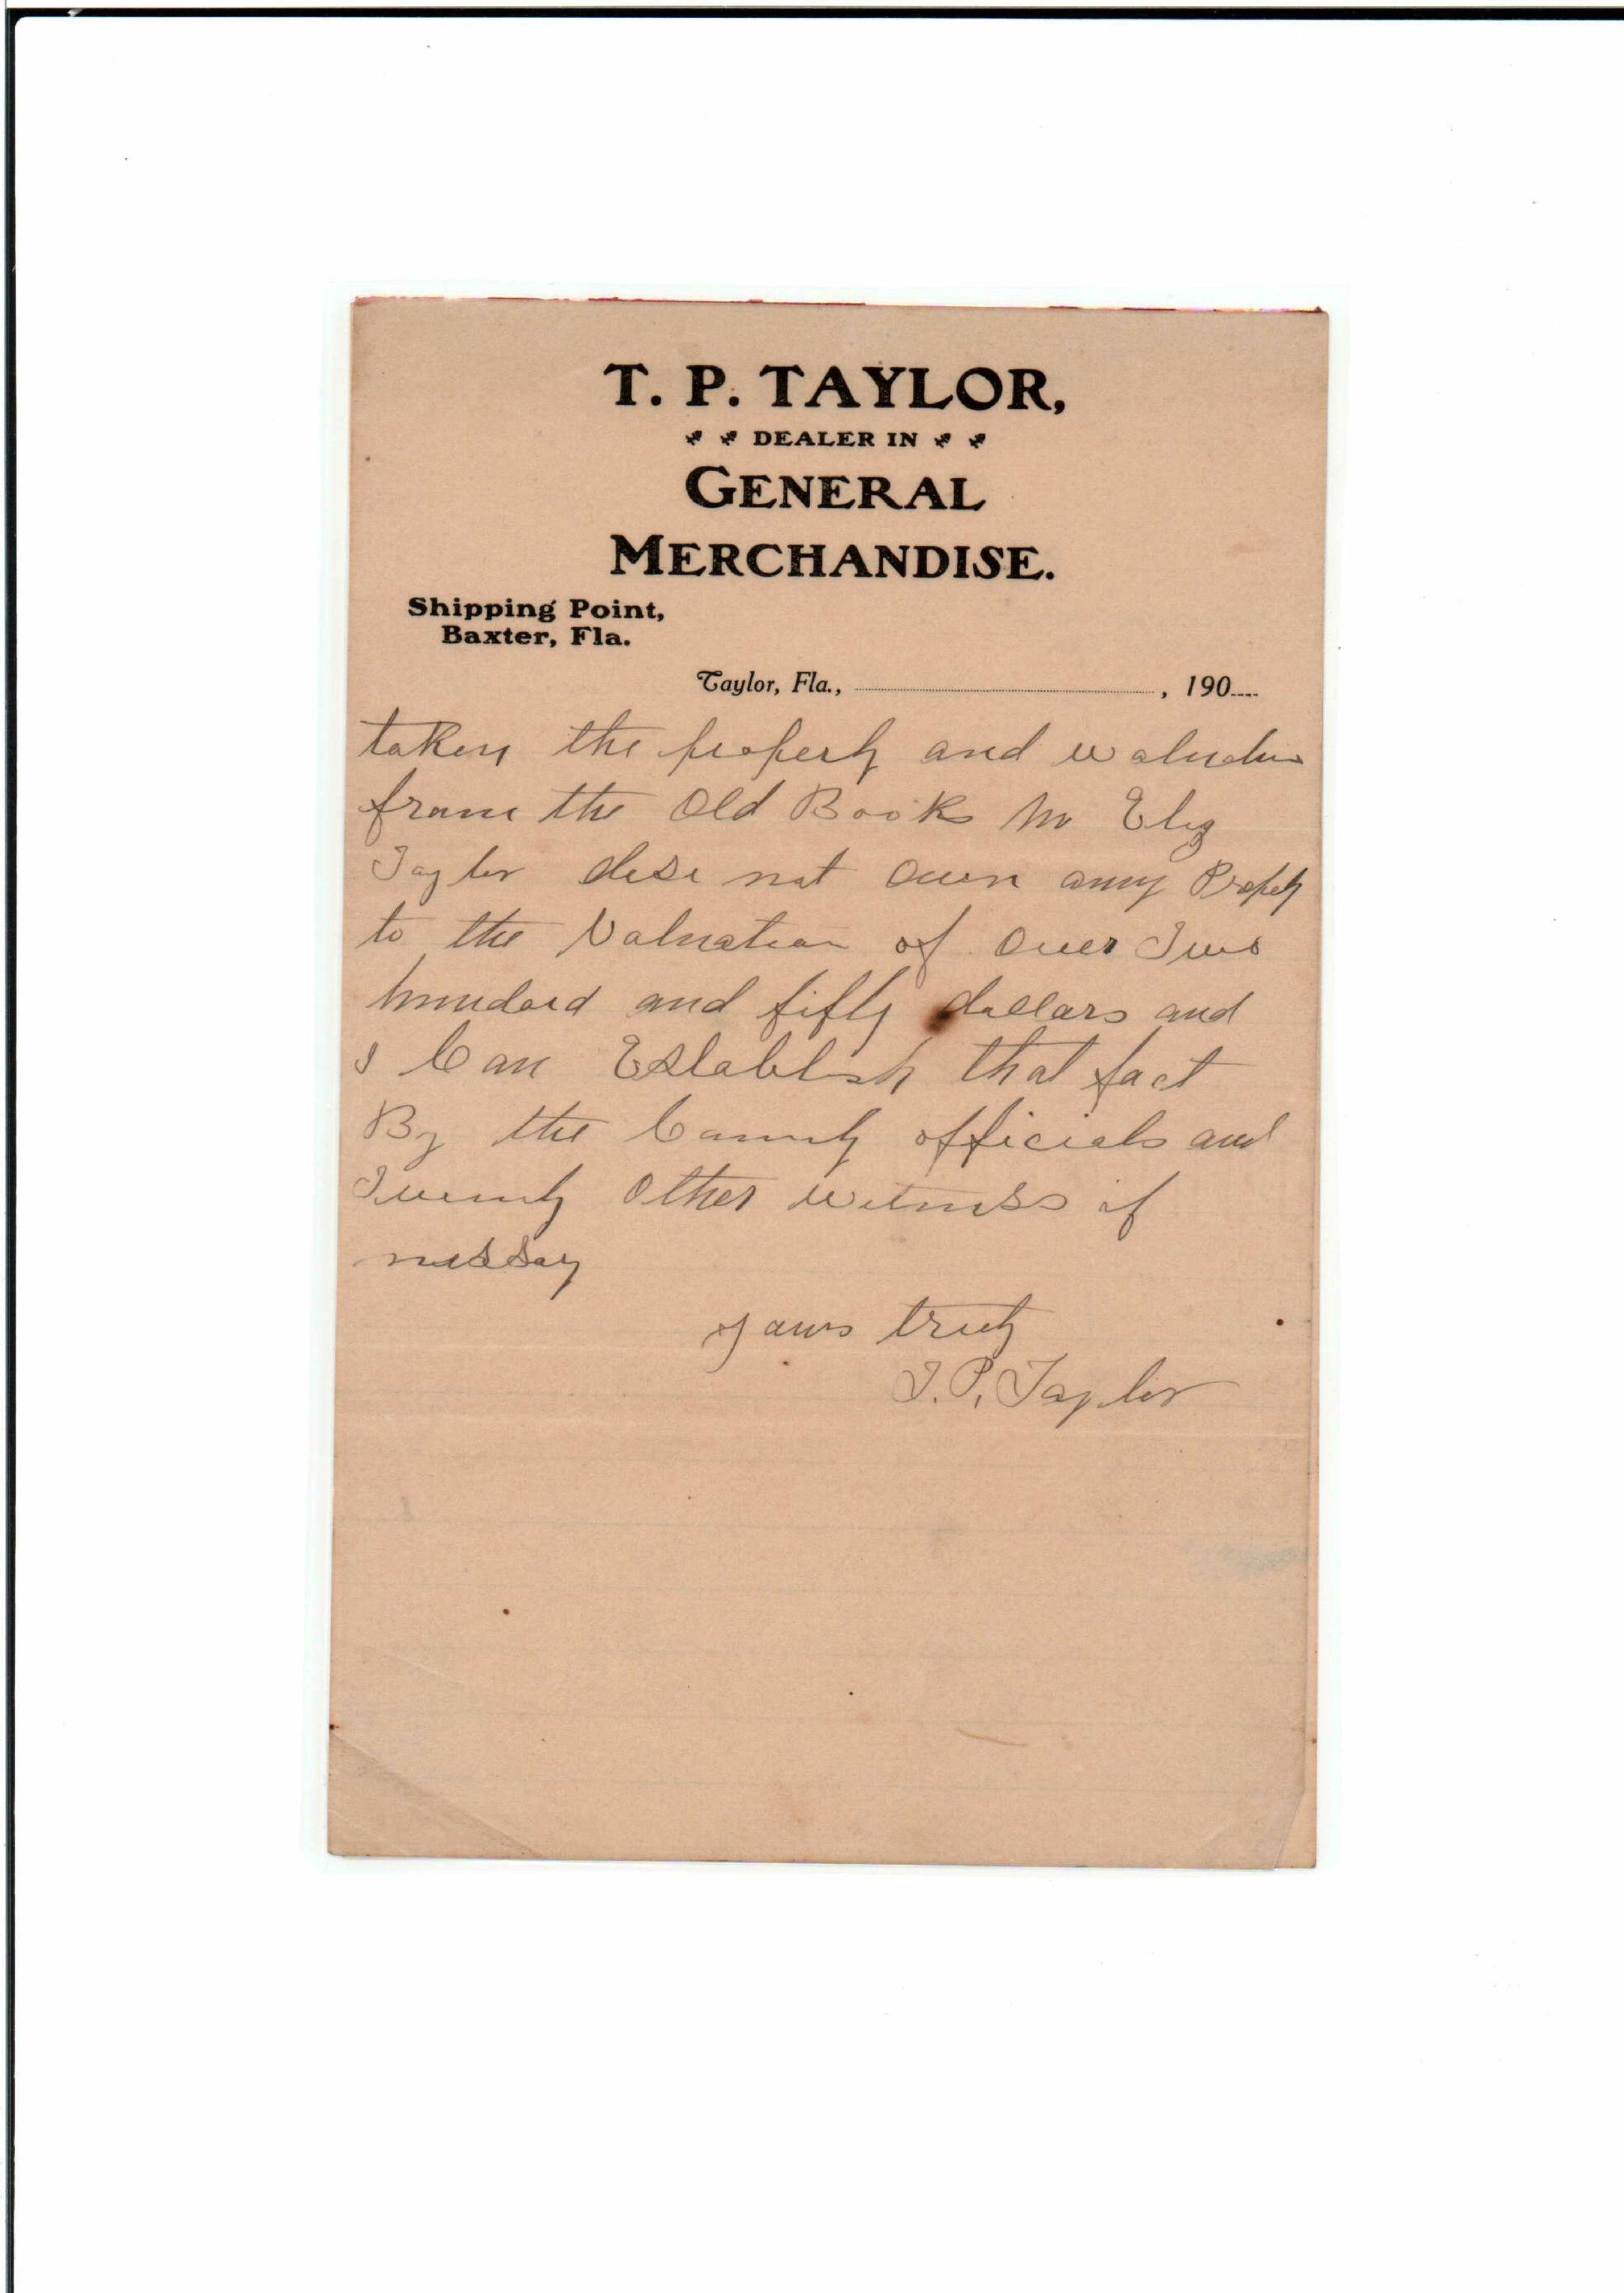 T. P. TAYLOR,
DEALER IN
GENERAL
MERCHANDISE.
Shipping Point,
Baxter, Fla.
Taylor, Fla., , 190
taken the property and
from the Old Books Mr Elig
Taylor dose not own anny Propety
to the Valuation of over Two
hundard and fifty dollars and
I Can Establish that fact
By the County officials and
Twenty Other witness if
nessay
yours truly
T. P. Taylor